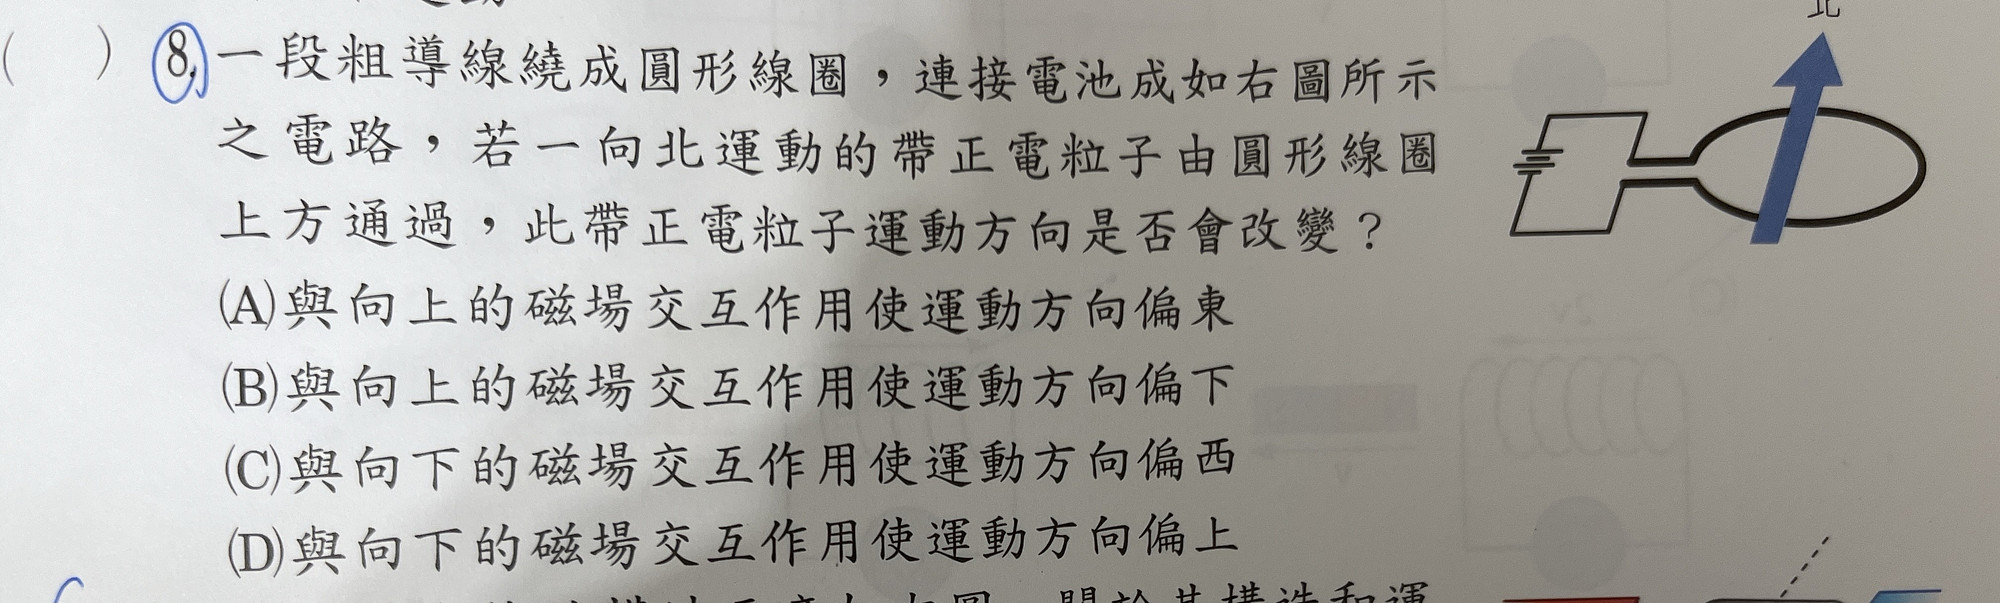 北
( ) 8.一段粗導線繞成圓形線圈，連接電池成如右圖所示
之電路，若一向北運動的帶正電粒子由圓形線圈
上方通過，此帶正電粒子運動方向是否會改變？
(A)與向上的磁場交互作用使運動方向偏東
(B)與向上的磁場交互作用使運動方向偏下
(C)與向下的磁場交互作用使運動方向偏西
(D)與向下的磁場交互作用使運動方向偏上